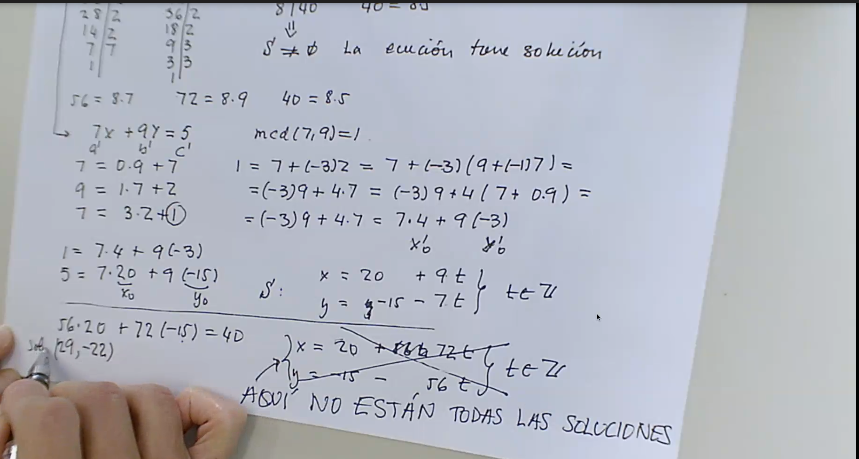 28 | 2
14 | 2
7 | 7
1
36 | 2
18 | 2
9 | 3
3 | 3
1
8 | 40
⇓
S ≠ ∅ La ecución tiene solución
56 = 8.7 72 = 8.9 40 = 8.5
7x + 9y = 5 mcd(7,9)=1
a' b' c'
7 = 0.9 + 7
9 = 1.7 + 2
7 = 3.2 + 1
1 = 7 + (-3)2 = 7 + (-3)(9 + (-1)7) =
= (-3)9 + 4.7 = (-3)9 + 4(7 + 0.9) =
= (-3)9 + 4.7 = 7.4 + 9(-3)
x'₀ y'₀
1 = 7.4 + 9(-3)
5 = 7.20 + 9(-15)
x₀ y₀
S: x = 20 + 9t
y = -15 - 7t } t∈Z
56.20 + 72(-15) = 40
(29, -22)
x = 20 + 72t
y = -15 - 56t } t∈Z
AQUÍ NO ESTÁN TODAS LAS SOLUCIONES